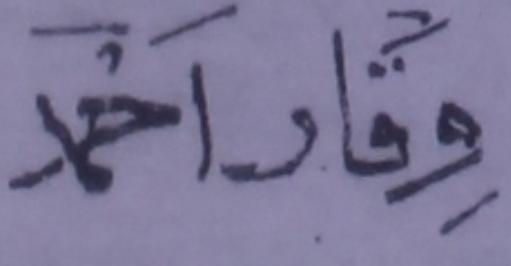 وِقَار اَحْمَد